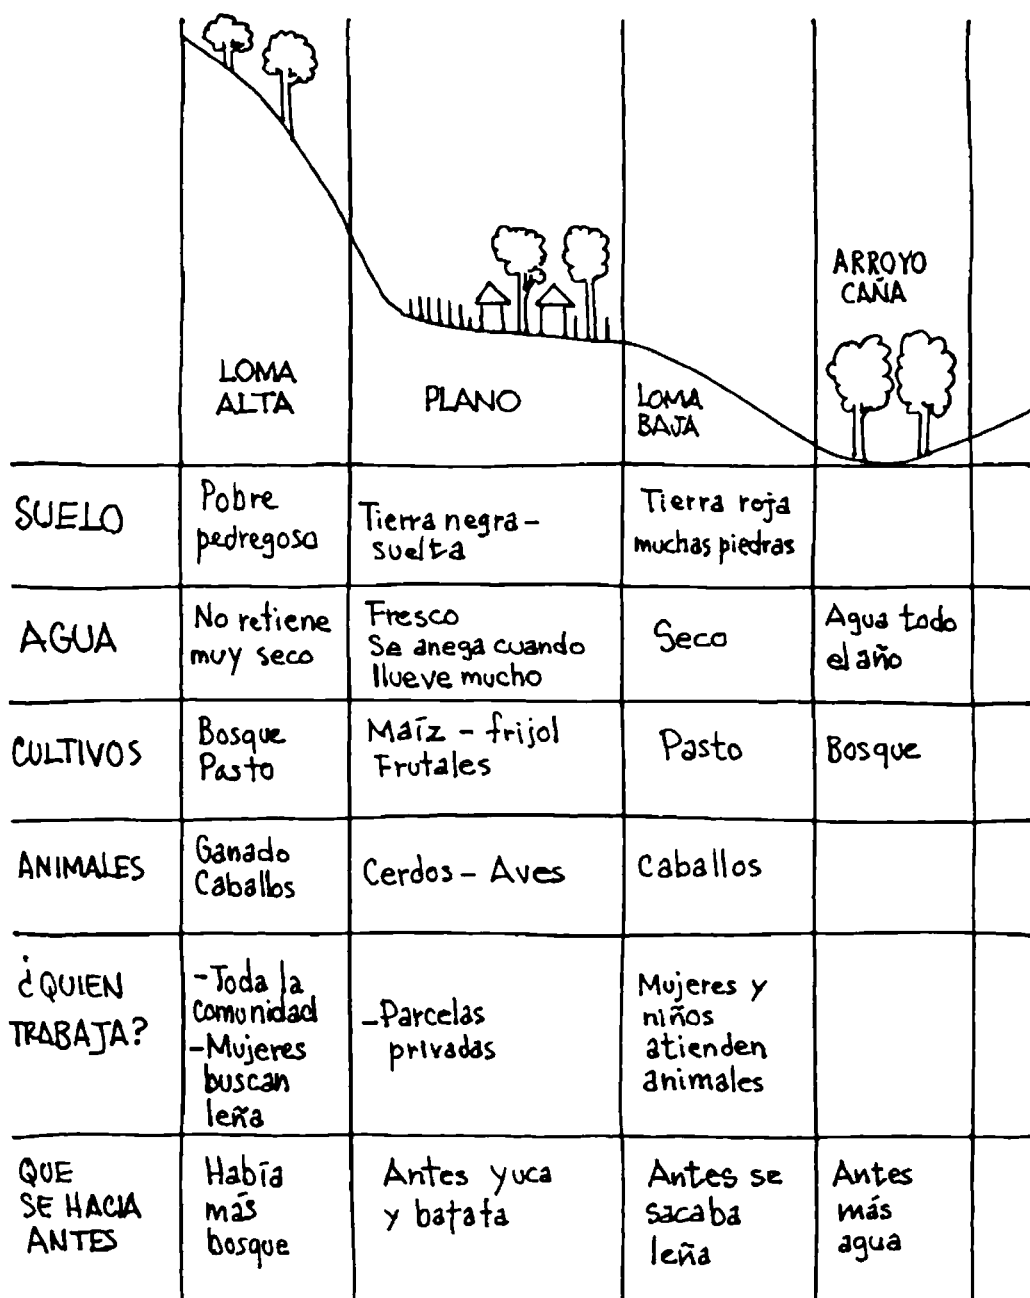 ARROYO
CAÑA
LOMA
ALTA
PLANO
LOMA
BAJA
SUELO
Pobre
pedregoso
Tierra negra -
suelta
Tierra roja
muchas piedras
AGUA
No retiene
muy seco
Fresco
Se anega cuando
llueve mucho
Seco
Agua todo
el año
CULTIVOS
Bosque
Pasto
Maíz - frijol
Frutales
Pasto
Bosque
ANIMALES
Ganado
Caballos
Cerdos - Aves
Caballos
¿QUIEN
TRABAJA?
- Toda la
comunidad
- Mujeres
buscan
leña
- Parcelas
privadas
Mujeres y
niños
atienden
animales
QUE
SE HACIA
ANTES
Había
más
bosque
Antes yuca
y batata
Antes se
sacaba
leña
Antes
más
agua